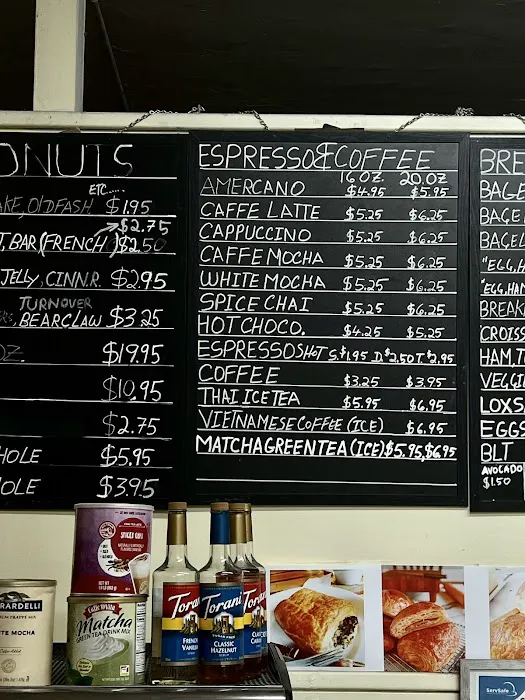 ONUTS
ETC.....
AKE, OLDFASH $1.95
$2.75
T, BAR (FRENCH) $2.50
JELLY, CINN.R. $2.95
TURNOVER
BEARCLAW $3.25
OZ. $19.95
$10.95
$2.75
HOLE $5.95
OLE $3.95
ESPRESSO & COFFEE
16 OZ 20 OZ
AMERCANO $4.95 $5.95
CAFFE LATTE $5.25 $6.25
CAPPUCCINO $5.25 $6.25
CAFFE MOCHA $5.25 $6.25
WHITE MOCHA $5.25 $6.25
SPICE CHAI $5.25 $6.25
HOT CHOCO. $4.25 $5.25
ESPRESSO SHOT S.$1.95 D.$2.50 T.$2.95
COFFEE $3.25 $3.95
THAI ICE TEA $5.95 $6.95
VIETNAMESE COFFEE (ICE) $6.95
MATCHA GREEN TEA (ICE) $5.95, $6.95
BRE
BAGE
BAGE
BAGEL
"EGG, H
"EGG, HAM
BREAK
CROIS
HAM, T
VEGGI
LOXS
EGGS
BLT
AVOCADO
$1.50
RARDELLI
TE MOCHA
Matcha
GREEN TEA DRINK MIX
Torani
FRENCH
VANILLA
Torani
CLASSIC
HAZELNUT
Torani
ServSafe